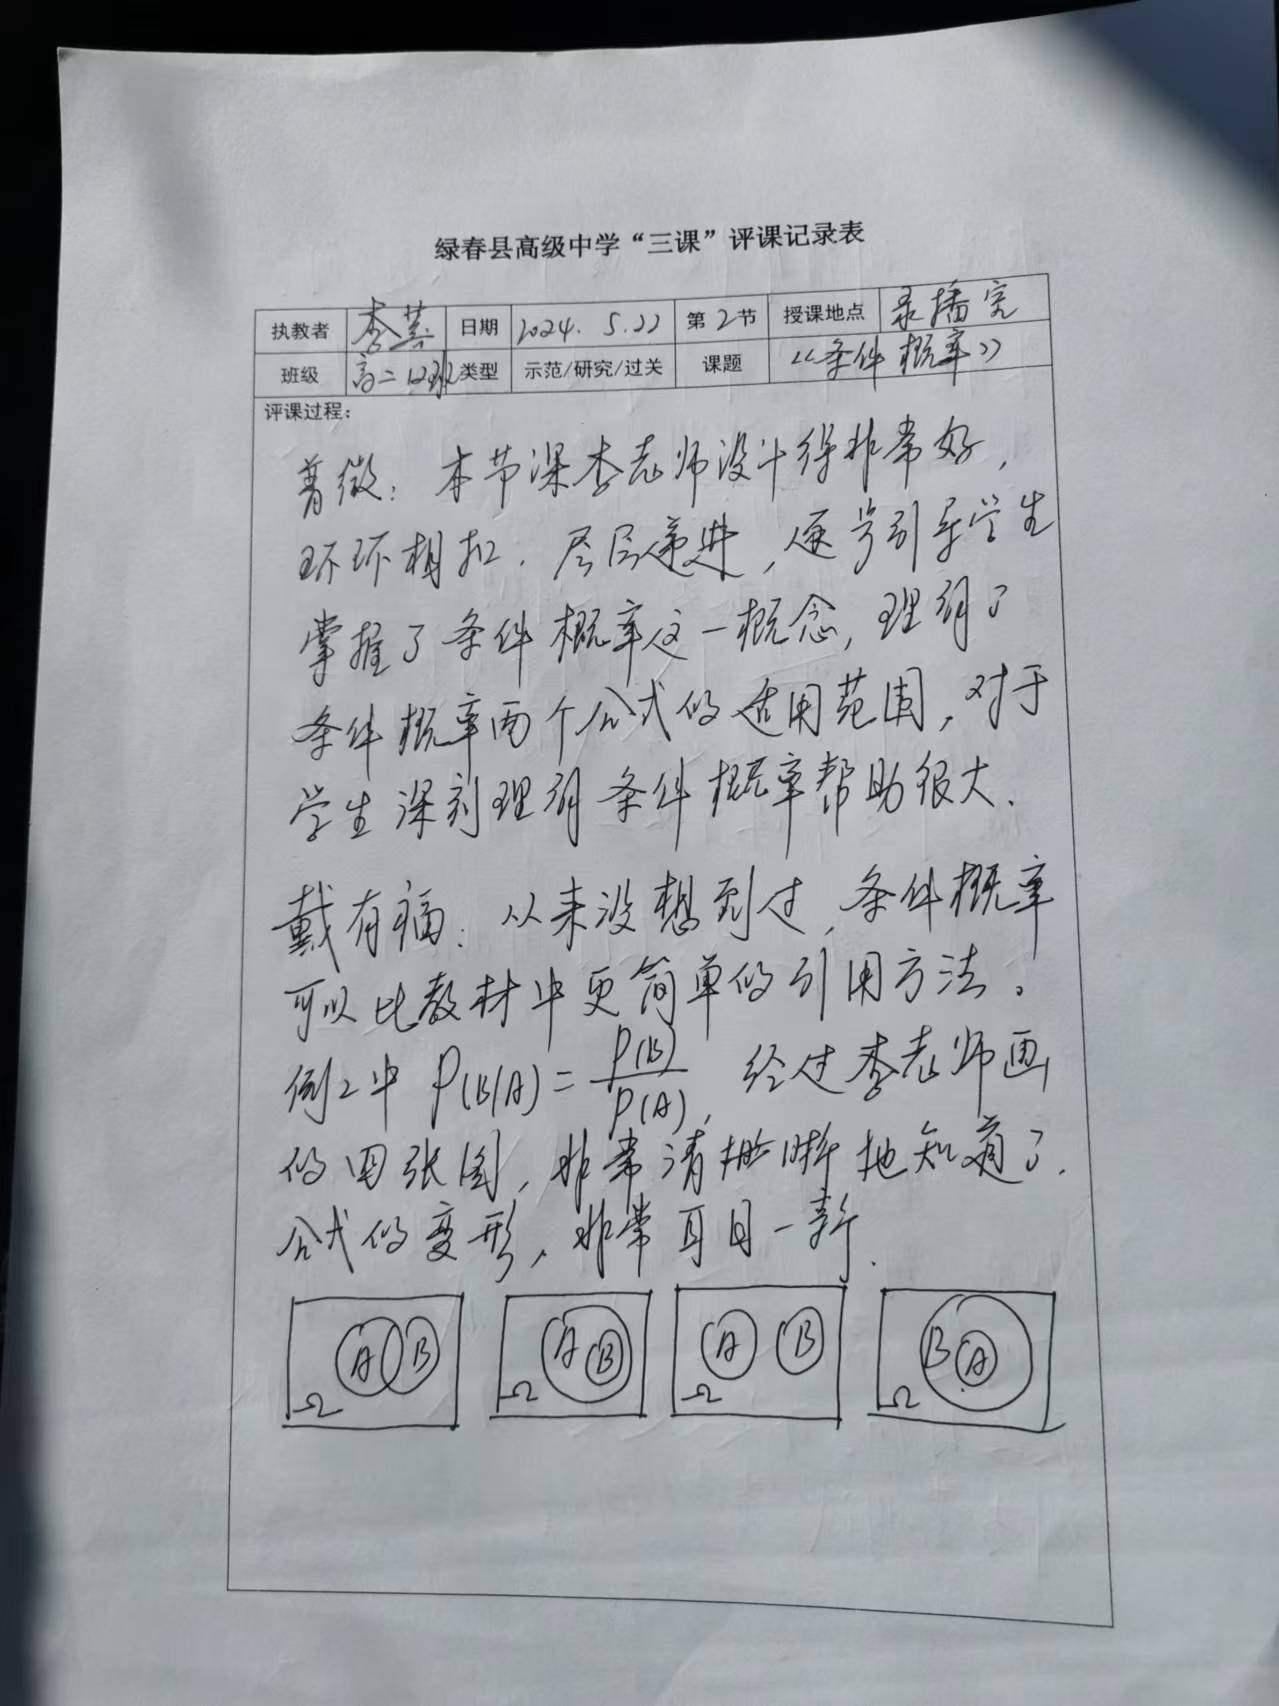 绿春县高级中学“三课”评课记录表
执教者 李 日期 2024. 5.22 第 2 节 授课地点 录播室
班级 高二12班 类型 示范/研究/过关 课题 《条件概率》
评课过程：
普微：本节课李老师设计得非常好，
环环相扣．层层递进，逐步引导学生
掌握了条件概率这一概念，理解了
条件概率两个公式的适用范围，对于
学生深刻理解条件概率帮助很大．
戴有福：从来没想到过，条件概率
可以比教材中更简单的引用方法。
例2中 P(B|A)=P(B)/P(A)，经过李老师画
的四张图，非常清晰地知道了．
公式的变形，非常耳目一新．
A B Ω A B Ω A B Ω B A Ω